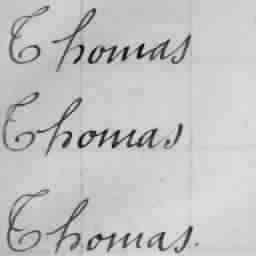 Thomas
Thomas
Thomas.